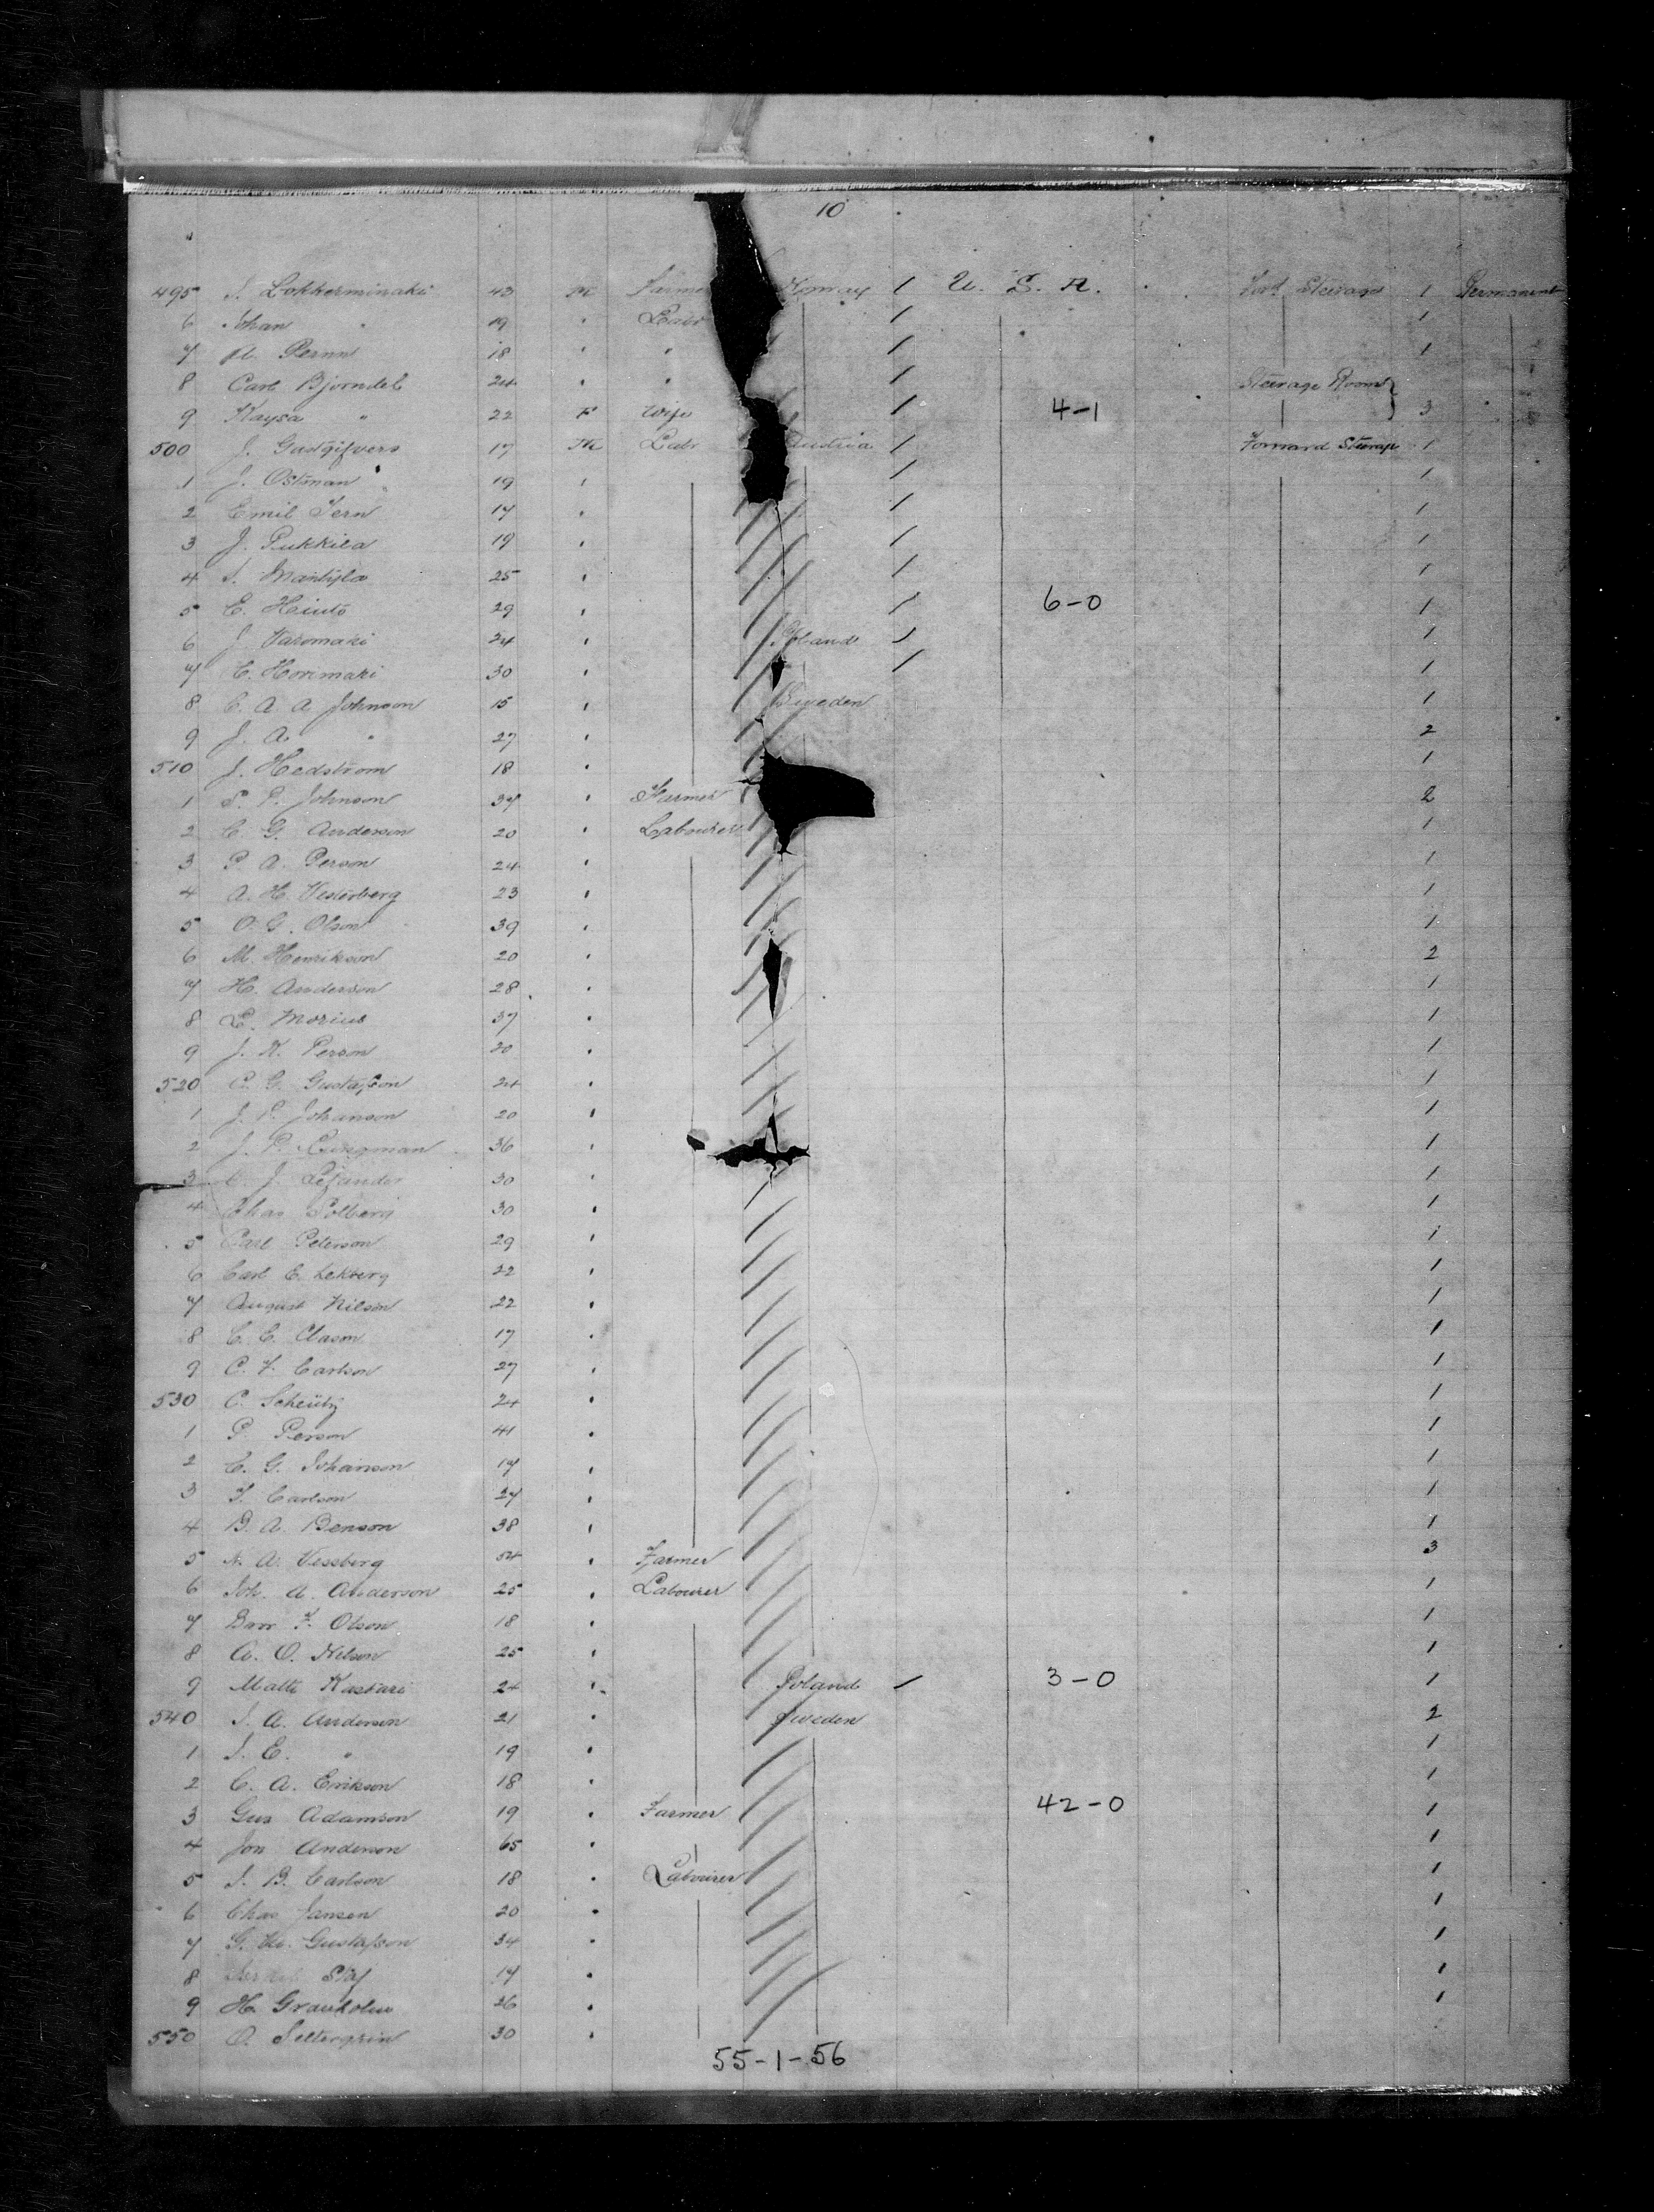 10
495 J. Lokkerminaki 43 M Farme Norway 1 U. S. A. Ford Steerage 1 Permanent
6 Johan " 19 " Labr 1 1
7 A. Pernn 18 " " 1 1
8 Carl Bjorndel 24 " " 1 Steerage Room
9 Kaysa " 22 F Wife 1 4-1 3 "
500 J. Gastgifvers 17 M Labr Austria 1 Forward Steerage 1
1 J. Ostman 19 " 1 1
2 Emil Jern 17 " 1 1
3 J. Pukkila 19 " 1 1
4 S. Mantyla 25 " 1 1
5 E. Hinto 29 " 1 6-0 1
6 J. Varomaki 24 " Poland 1 1
7 E. Horimaki 30 " 1 1
8 C. A. A. Johnson 15 " Sweden 1
9 J. A. " 27 " 2
510 J. Hedstrom 18 " 1
1 S. P. Johnson 37 " Farmer 2
2 C. G. Anderson 20 " Labourer 1
3 P. A. Person 24 " 1
4 A. H. Vesterberg 23 " 1
5 O. G. Olson 39 " 1
6 M. Henrikson 20 " 2
7 H. Anderson 28 " 1
8 L. Morius 37 " 1
9 J. K. Person 20 " 1
520 C. E. Gustafson 24 " 1
1 J. P. Johanson 20 " 1
2 J. P. Bergman 36 " 1
3 C. J. Lefander 30 " 1
4 Chas Solberg 30 " 1
5 Carl Peterson 29 " 1
6 Carl E. Lekberg 22 " 1
7 August Nilson 22 " 1
8 C. E. Clason 17 " 1
9 C. F. Carlson 27 " 1
530 C. Scheutz 24 " 1
1 P. Person 41 " 1
2 C. G. Johanson 17 " 1
3 F. Carlson 27 " 1
4 B. A. Benson 38 " 1
5 N. A. Vessberg 54 " Farmer 3
6 Joh. A. Anderson 25 " Labourer 1
7 F. Olson 18 " 1
8 A. O. Nelson 25 " 1
9 Matti Kaskari 24 " Poland 1 3-0 1
540 J. A. Anderson 21 " Sweden 2
1 J. E. " 19 " 1
2 C. A. Erikson 18 " 1
3 Gus Adamson 19 " Farmer 42-0 1
4 Jon Anderson 65 " 1
5 J. B. Carlson 18 " Labourer 1
6 Chas Jansen 20 " 1
7 G. W. Gustafson 34 " 1
8 Staf 17 " 1
9 H. Granholm 26 " 1
550 O. Settergrin 30 "
55-1-56